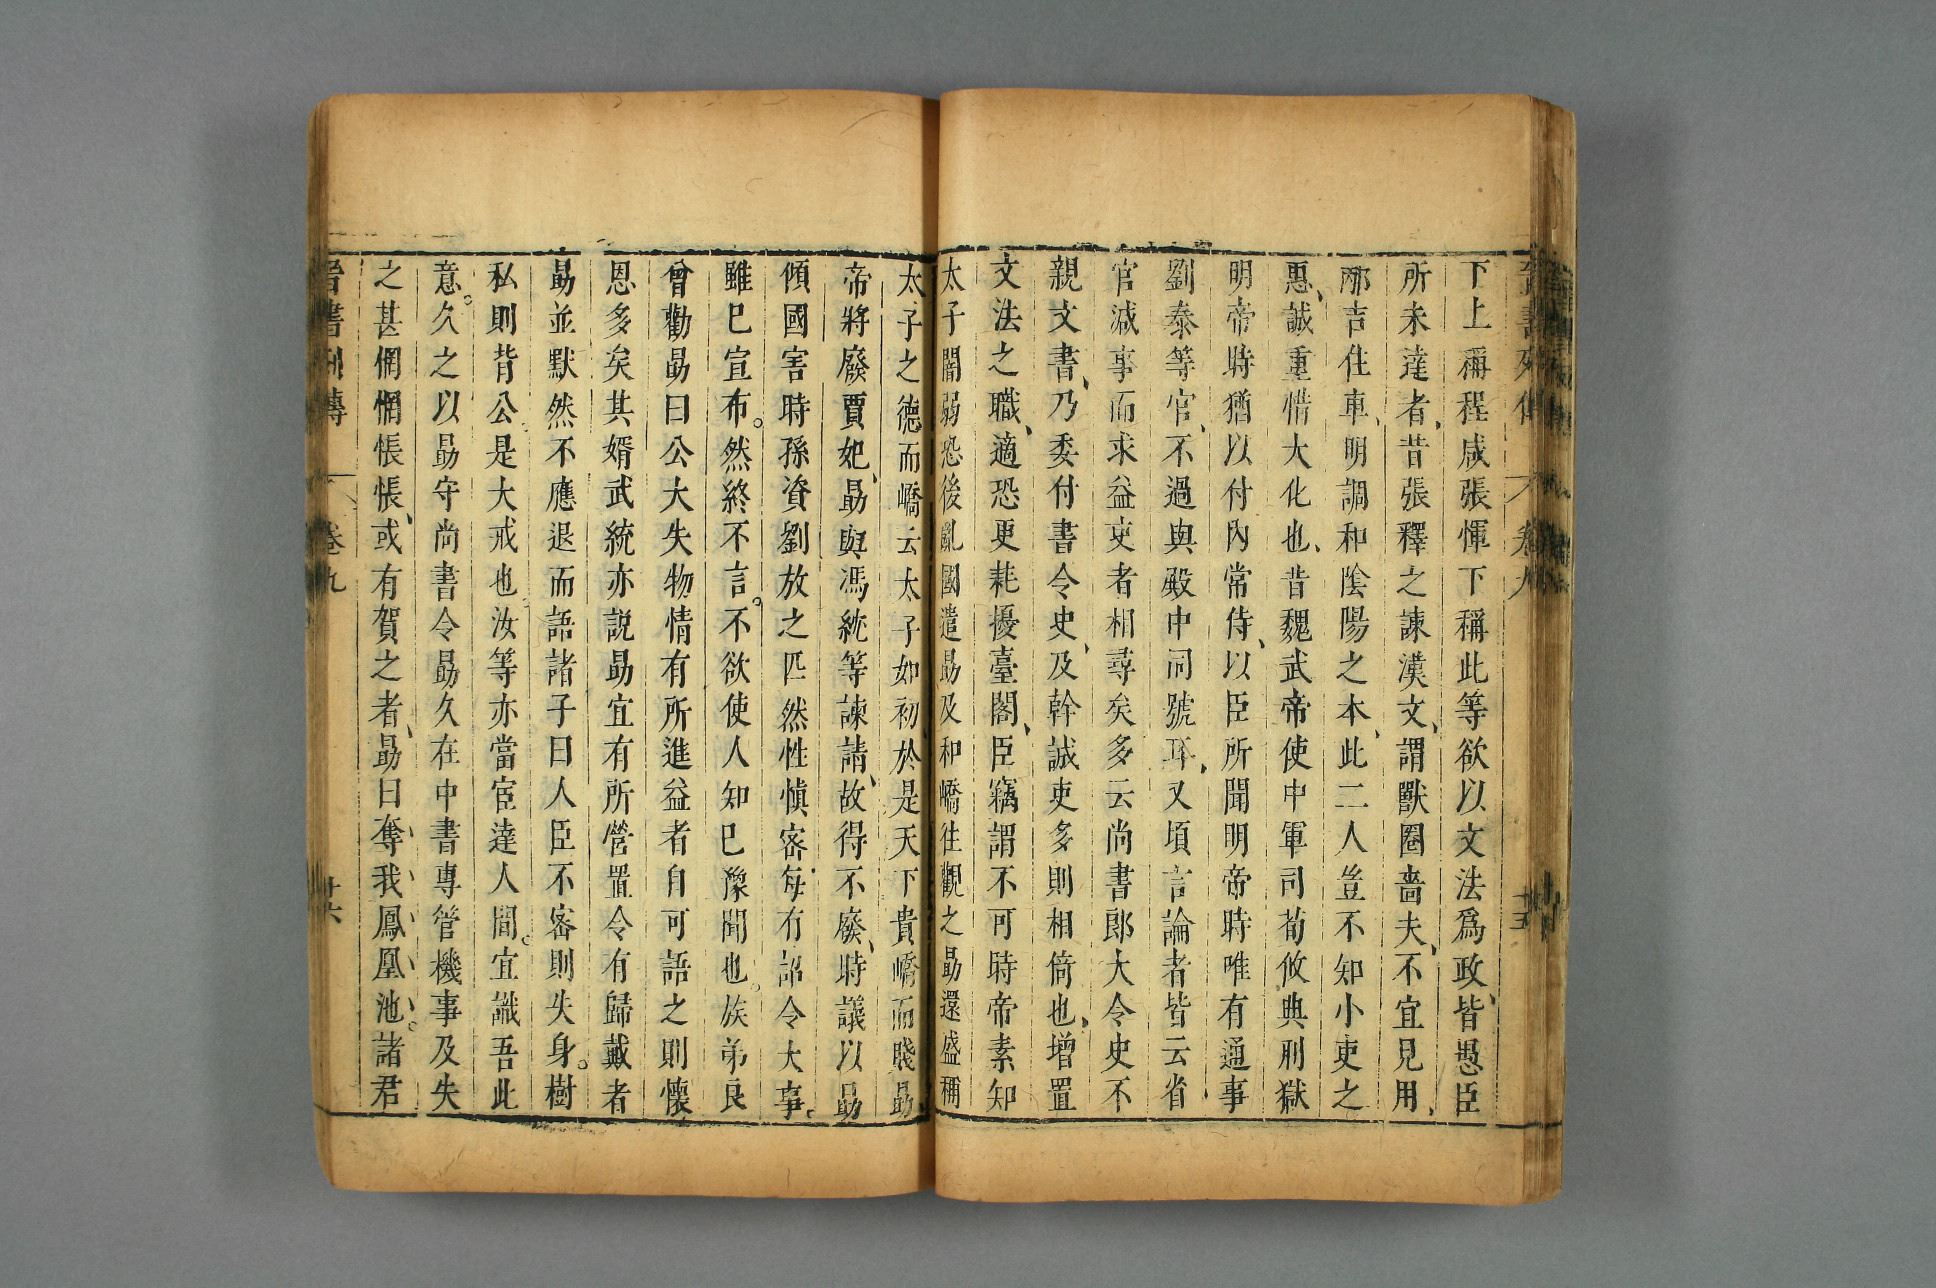 下上稱程咸張惲下稱此等欲以文法爲政皆愚臣
所未達者昔張釋之諫漢文謂獸圈嗇夫不宜見用
邴吉住車明調和陰陽之本此二人豈不知小吏之
惠誠重惜大化也昔魏武帝使中軍司荀攸典刑獄
明帝時猶以付內常侍以臣所聞明帝時唯有通事
劉泰等官不過與殿中同號耳又頃言論者皆云省
官減事而求益吏者相尋矣多云尚書郎大令史不
親文書乃委付書令史及幹誠吏多則相倚也增置
文法之職適恐更耗擾臺閣臣竊謂不可時帝素知
太子闇弱恐後亂國遣勗及和嶠往觀之勗還盛稱
太子之德而嶠云太子如初於是天下貴嶠而賤勗
帝將廢賈妃勗與馮紞等諫請故得不廢時議以勗
傾國害時孫資劉放之匹然性慎密每有詔令大事
雖已宣布然終不言不欲使人知已豫聞也族弟良
曾勸勗曰公大失物情有所進益者自可語之則懷
恩多矣其婿武統亦說勗宜有所營置令有歸戴者
勗並默然不應退而語諸子曰人臣不密則失身樹
私則背公是大戒也汝等亦當宦達人間宜識吾此
意久之以勗守尚書令勗久在中書專管機事及失
之甚惘惘悵悵或有賀之者勗曰奪我鳳凰池諸君
晉書列傳 卷九 十六